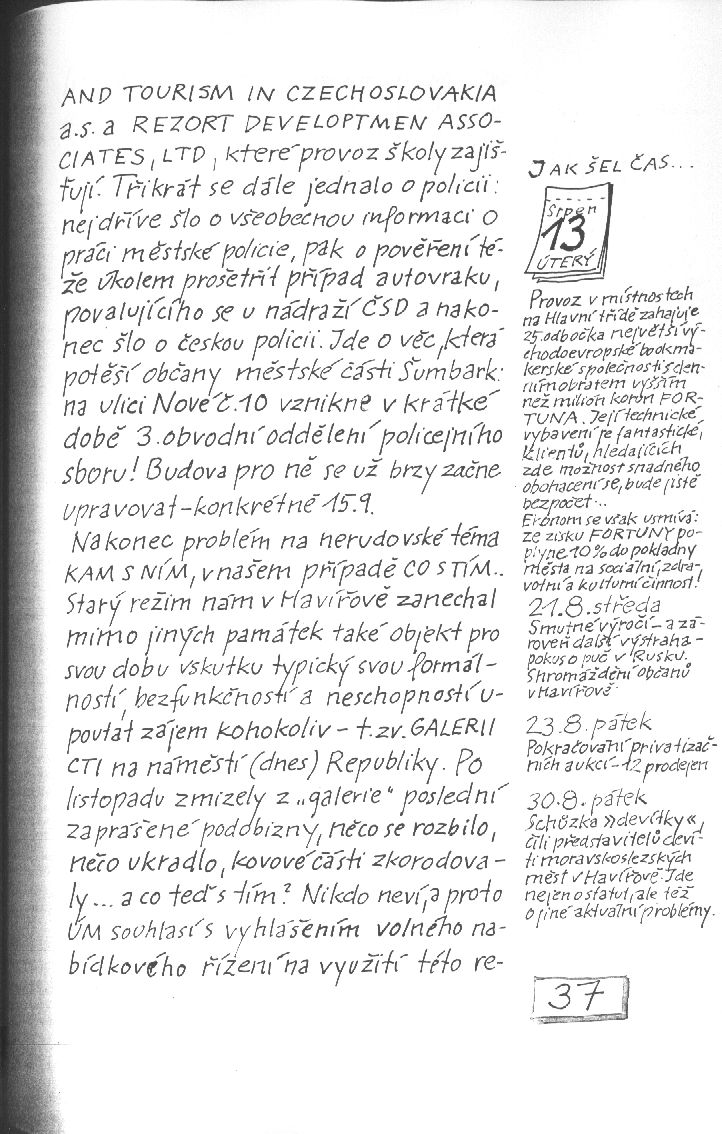 AND TOURISM IN CZECHOSLOVAKIA
a.s. a REZORT DEVELOPTMEN ASSO-
CIATES, LTD, které provoz školy zajiš-
ťují. Třikrát se dále jednalo o policii:
nejdříve šlo o všeobecnou informaci o
práci městské policie, pak o pověření té-
že úkolem prošetřit případ autovraku,
povalujícího se u nádraží ČSD a nako-
nec šlo o českou policii. Jde o věc, která
potěší občany městské části Šumbark:
na ulici Nové č. 10 vznikne v krátké
době 3. obvodní oddělení policejního
sboru! Budova pro ně se už brzy začne
upravovat - konkrétně 15.9.
Nakonec problém na nerudovské téma
KAM S NÍM, v našem případě CO S TÍM..
Starý režim nám v Havířově zanechal
mimo jiných památek také objekt pro
svou dobu vskutku typický svou formál-
ností, bezfunkčností a neschopností u-
poutat zájem kohokoliv - t.zv. GALERII
CTI na náměstí (dnes) Republiky. Po
listopadu zmizely z "galerie" poslední
zaprášené podobizny, něco se rozbilo,
něco ukradlo, kovové části zkorodova-
ly... a co teď s tím? Nikdo neví, a proto
ÚM souhlasí s vyhlášením volného na-
bídkového řízení na využití této re-
JAK ŠEL ČAS...
Srpen
13
ÚTERÝ
Provoz v místnostech
na Hlavní třídě zahajuje
25. odbočka největší vý-
chodoevropské bookma-
kerské společnosti s den-
ním obratem vyšším
než milion korun FOR-
TUNA. Její technické
vybavení je fantastické,
klientů, hledajících
zde možnost snadného
obohacení se, bude jistě
bezpočet...
Ekonom se však usmívá:
ze zisku FORTUNY po-
plyne 10% do pokladny
města na sociální, zdra-
votní a kulturní činnost!
21.8. středa
Smutné výročí - a zá-
roveň další výstraha -
pokus o puč v Rusku.
Shromáždění občanů
v Havířově.
23.8. pátek
Pokračování privatizač-
ních aukcí - 12 prodejen
30.8. pátek
Schůzka »devítky«,
čili představitelů deví-
ti moravskoslezských
měst v Havířově. Jde
nejen o statut, ale též
o jiné aktuální problémy.
37